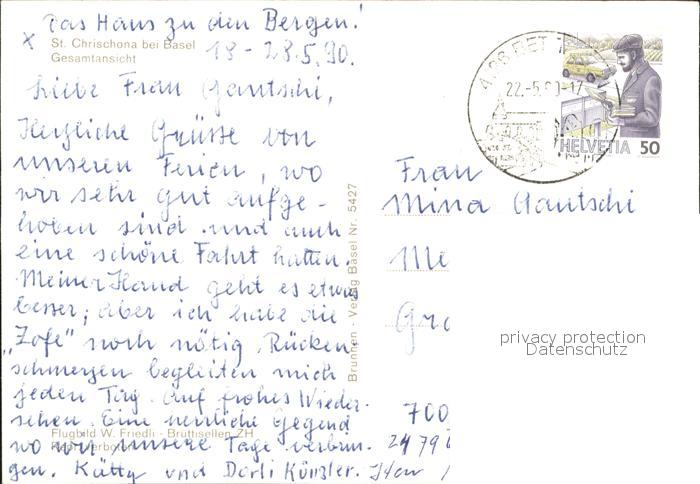 Das Haus zu den Bergen!
x
St. Chrischona bei Basel
Gesamtansicht
18 - 28.5.90.
Liebe Frau Gautschi,
Herzliche Grüsse von
unseren Ferien, wo
wir sehr gut aufge-
hoben sind und auch
eine schöne Fahrt hatten.
Meiner Hand geht es etwas
besser; aber ich habe die
„Zofe" noch nötig. Rücken-
schmerzen begleiten mich
jeden Tag. Auf frohes Wieder-
sehen. Eine herrliche Gegend
Flugbild W. Friedli - Brüttisellen ZH
wo wir unsere Tage verbrin-
gen. und Dorli Künzler.
Brunnen - Verlag Basel Nr. 5427
22.-5.90-17
HELVETIA 50
Frau
Mina Gautschi
Me
Gr
privacy protection
Datenschutz
700
2479